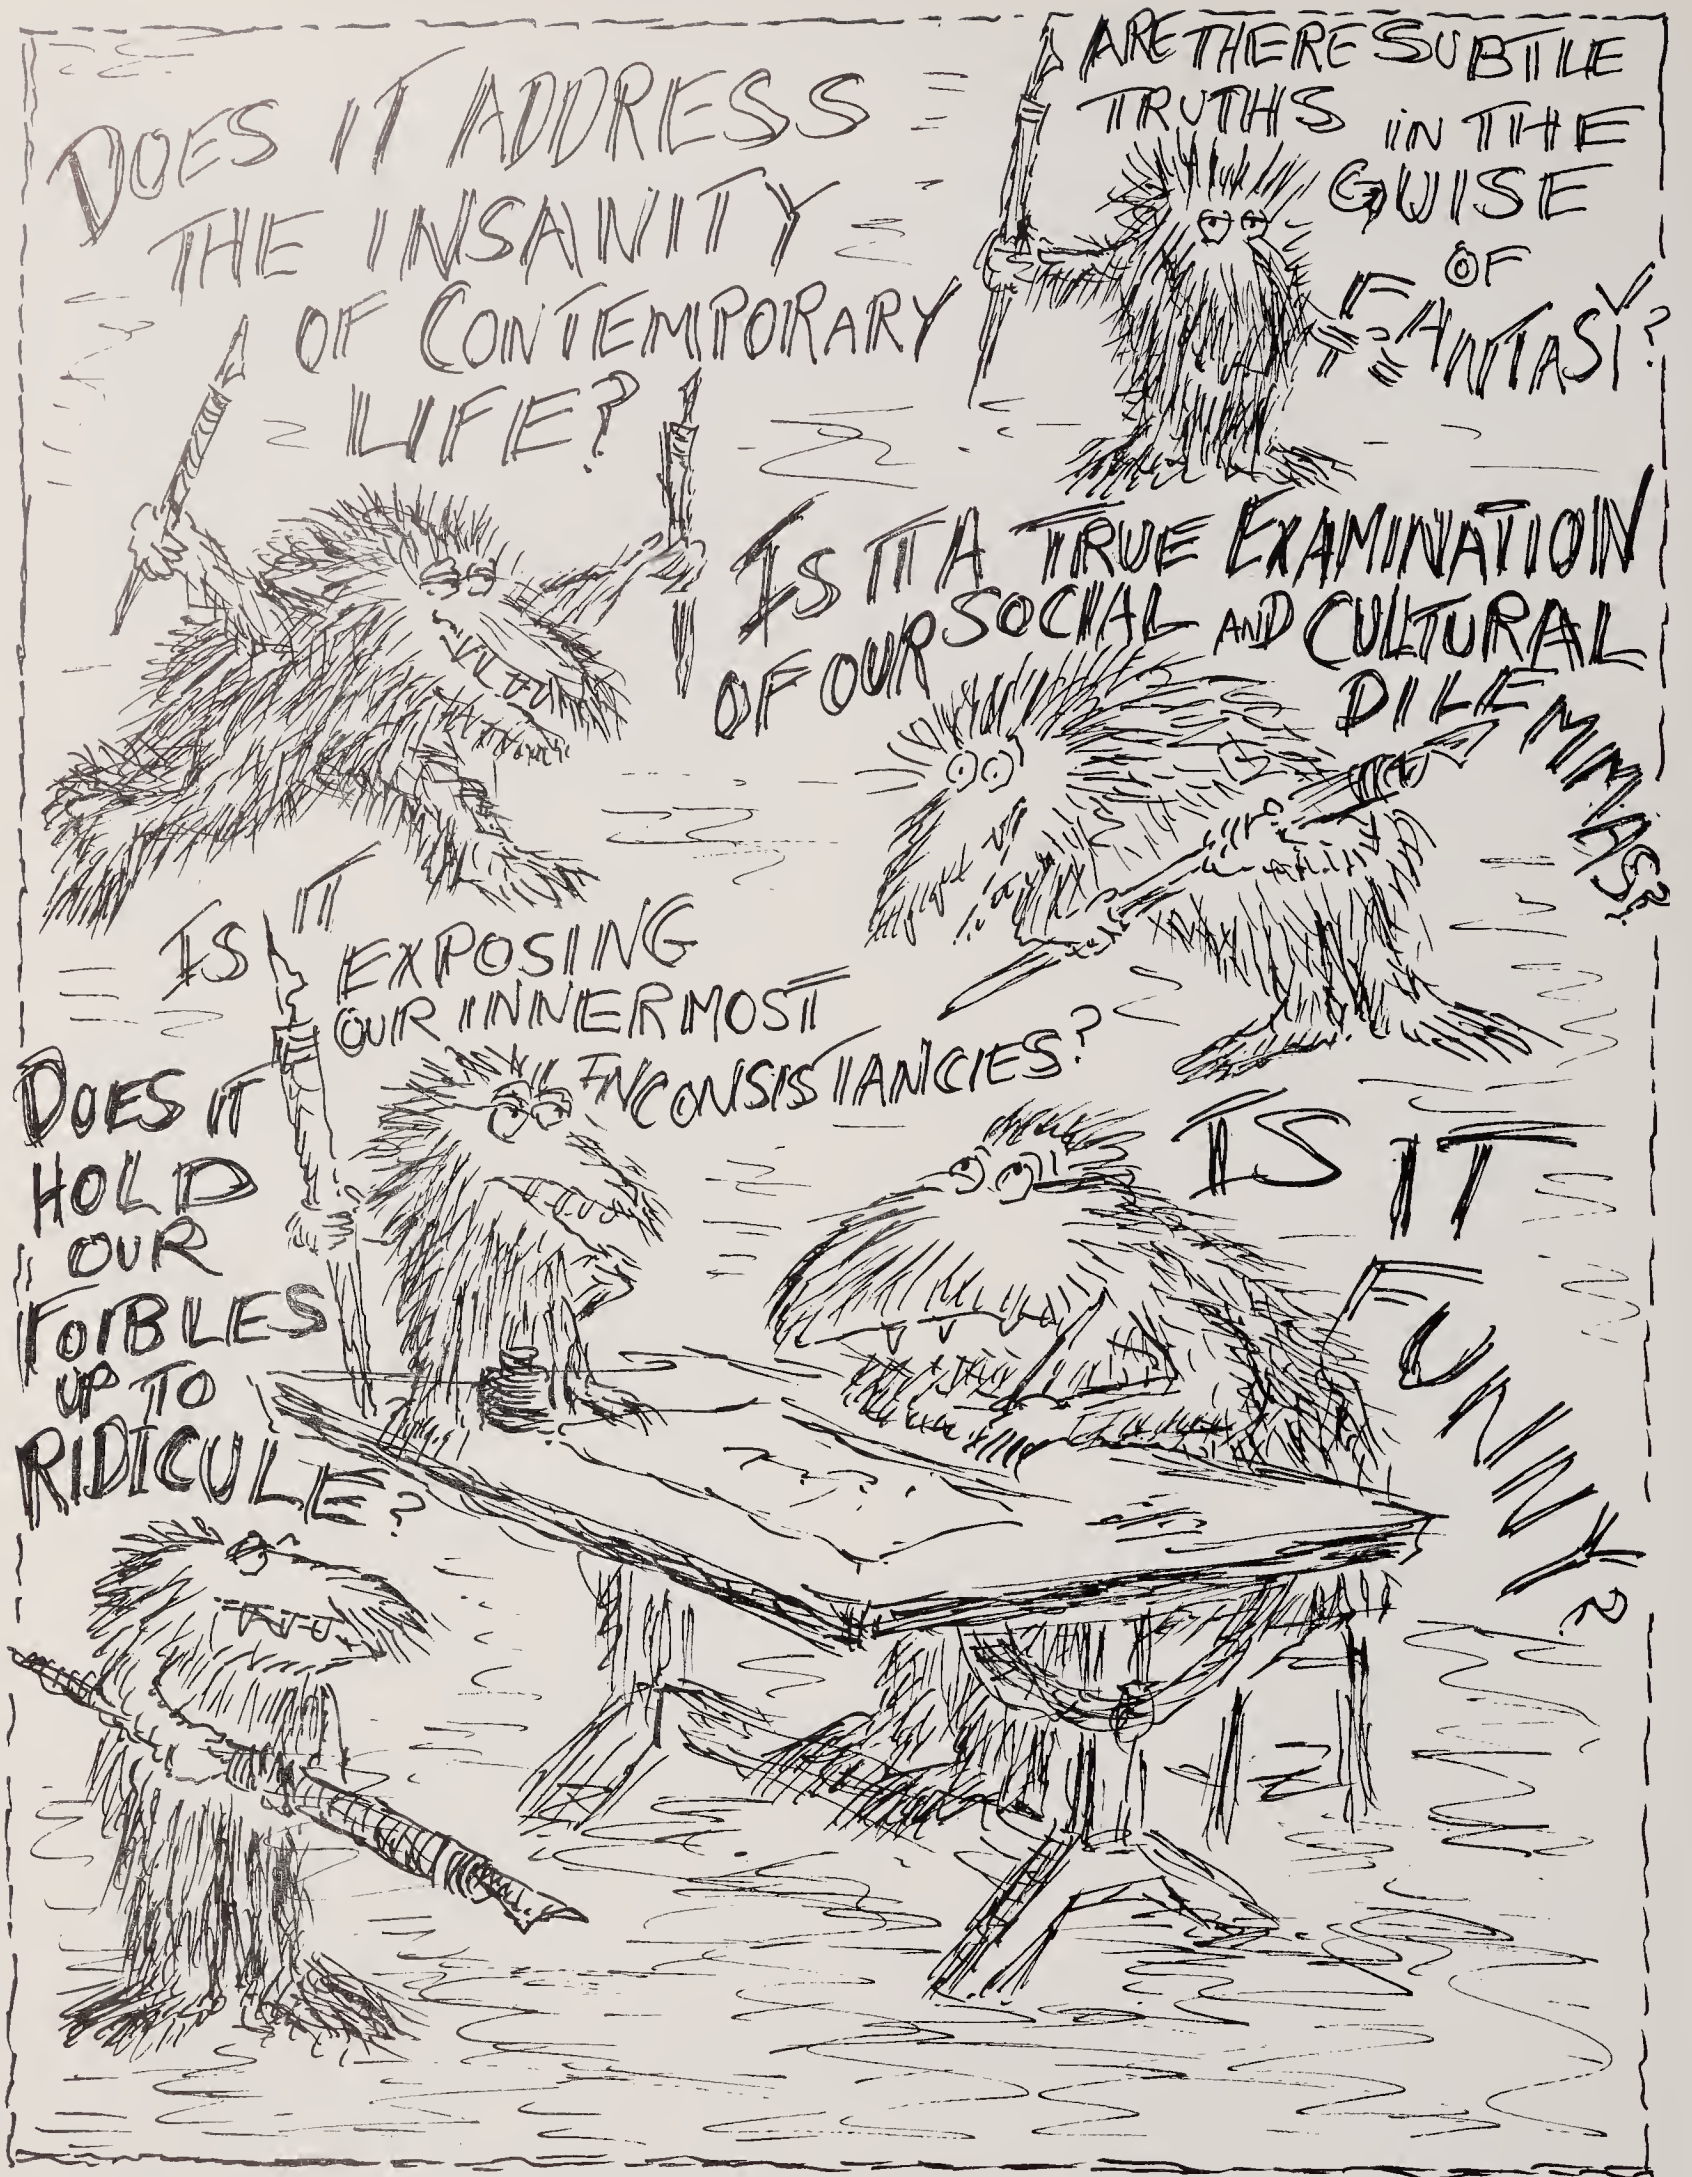 DOES IT ADDRESS
THE INSANITY
OF CONTEMPORARY
LIFE?
ARE THERE SUBTLE
TRUTHS IN THE
GUISE
OF
FANTASY?
IS IT A TRUE EXAMINATION
OF OUR SOCIAL AND CULTURAL
DILEMMAS?
IS IT
EXPOSING
OUR INNERMOST
INCONSISTANCIES?
DOES IT
HOLD
OUR
FOIBLES
UP TO
RIDICULE?
IS IT
FUNNY?